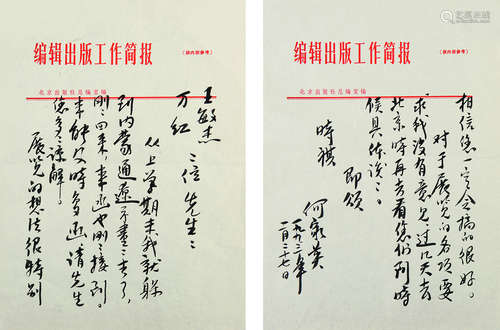 编辑出版工作简报
（供内部参考）
北京出版社总编室编
王敏杰
万红
二位先生：
从上学期末我就躲
到内蒙通辽去了，
刚刚回来，来函也刚刚接到。
未能及时复函，请先生
您多谅解。
展览的想法很特别
编辑出版工作简报
（供内部参考）
北京出版社总编室编
相信您一定会搞的很好。
对于展览的各项要
求我没有意见，过几天去
北京时再去看您们，到时
候具体谈谈。
即颂
时祺
何家英
一九九三年
一月二十七日